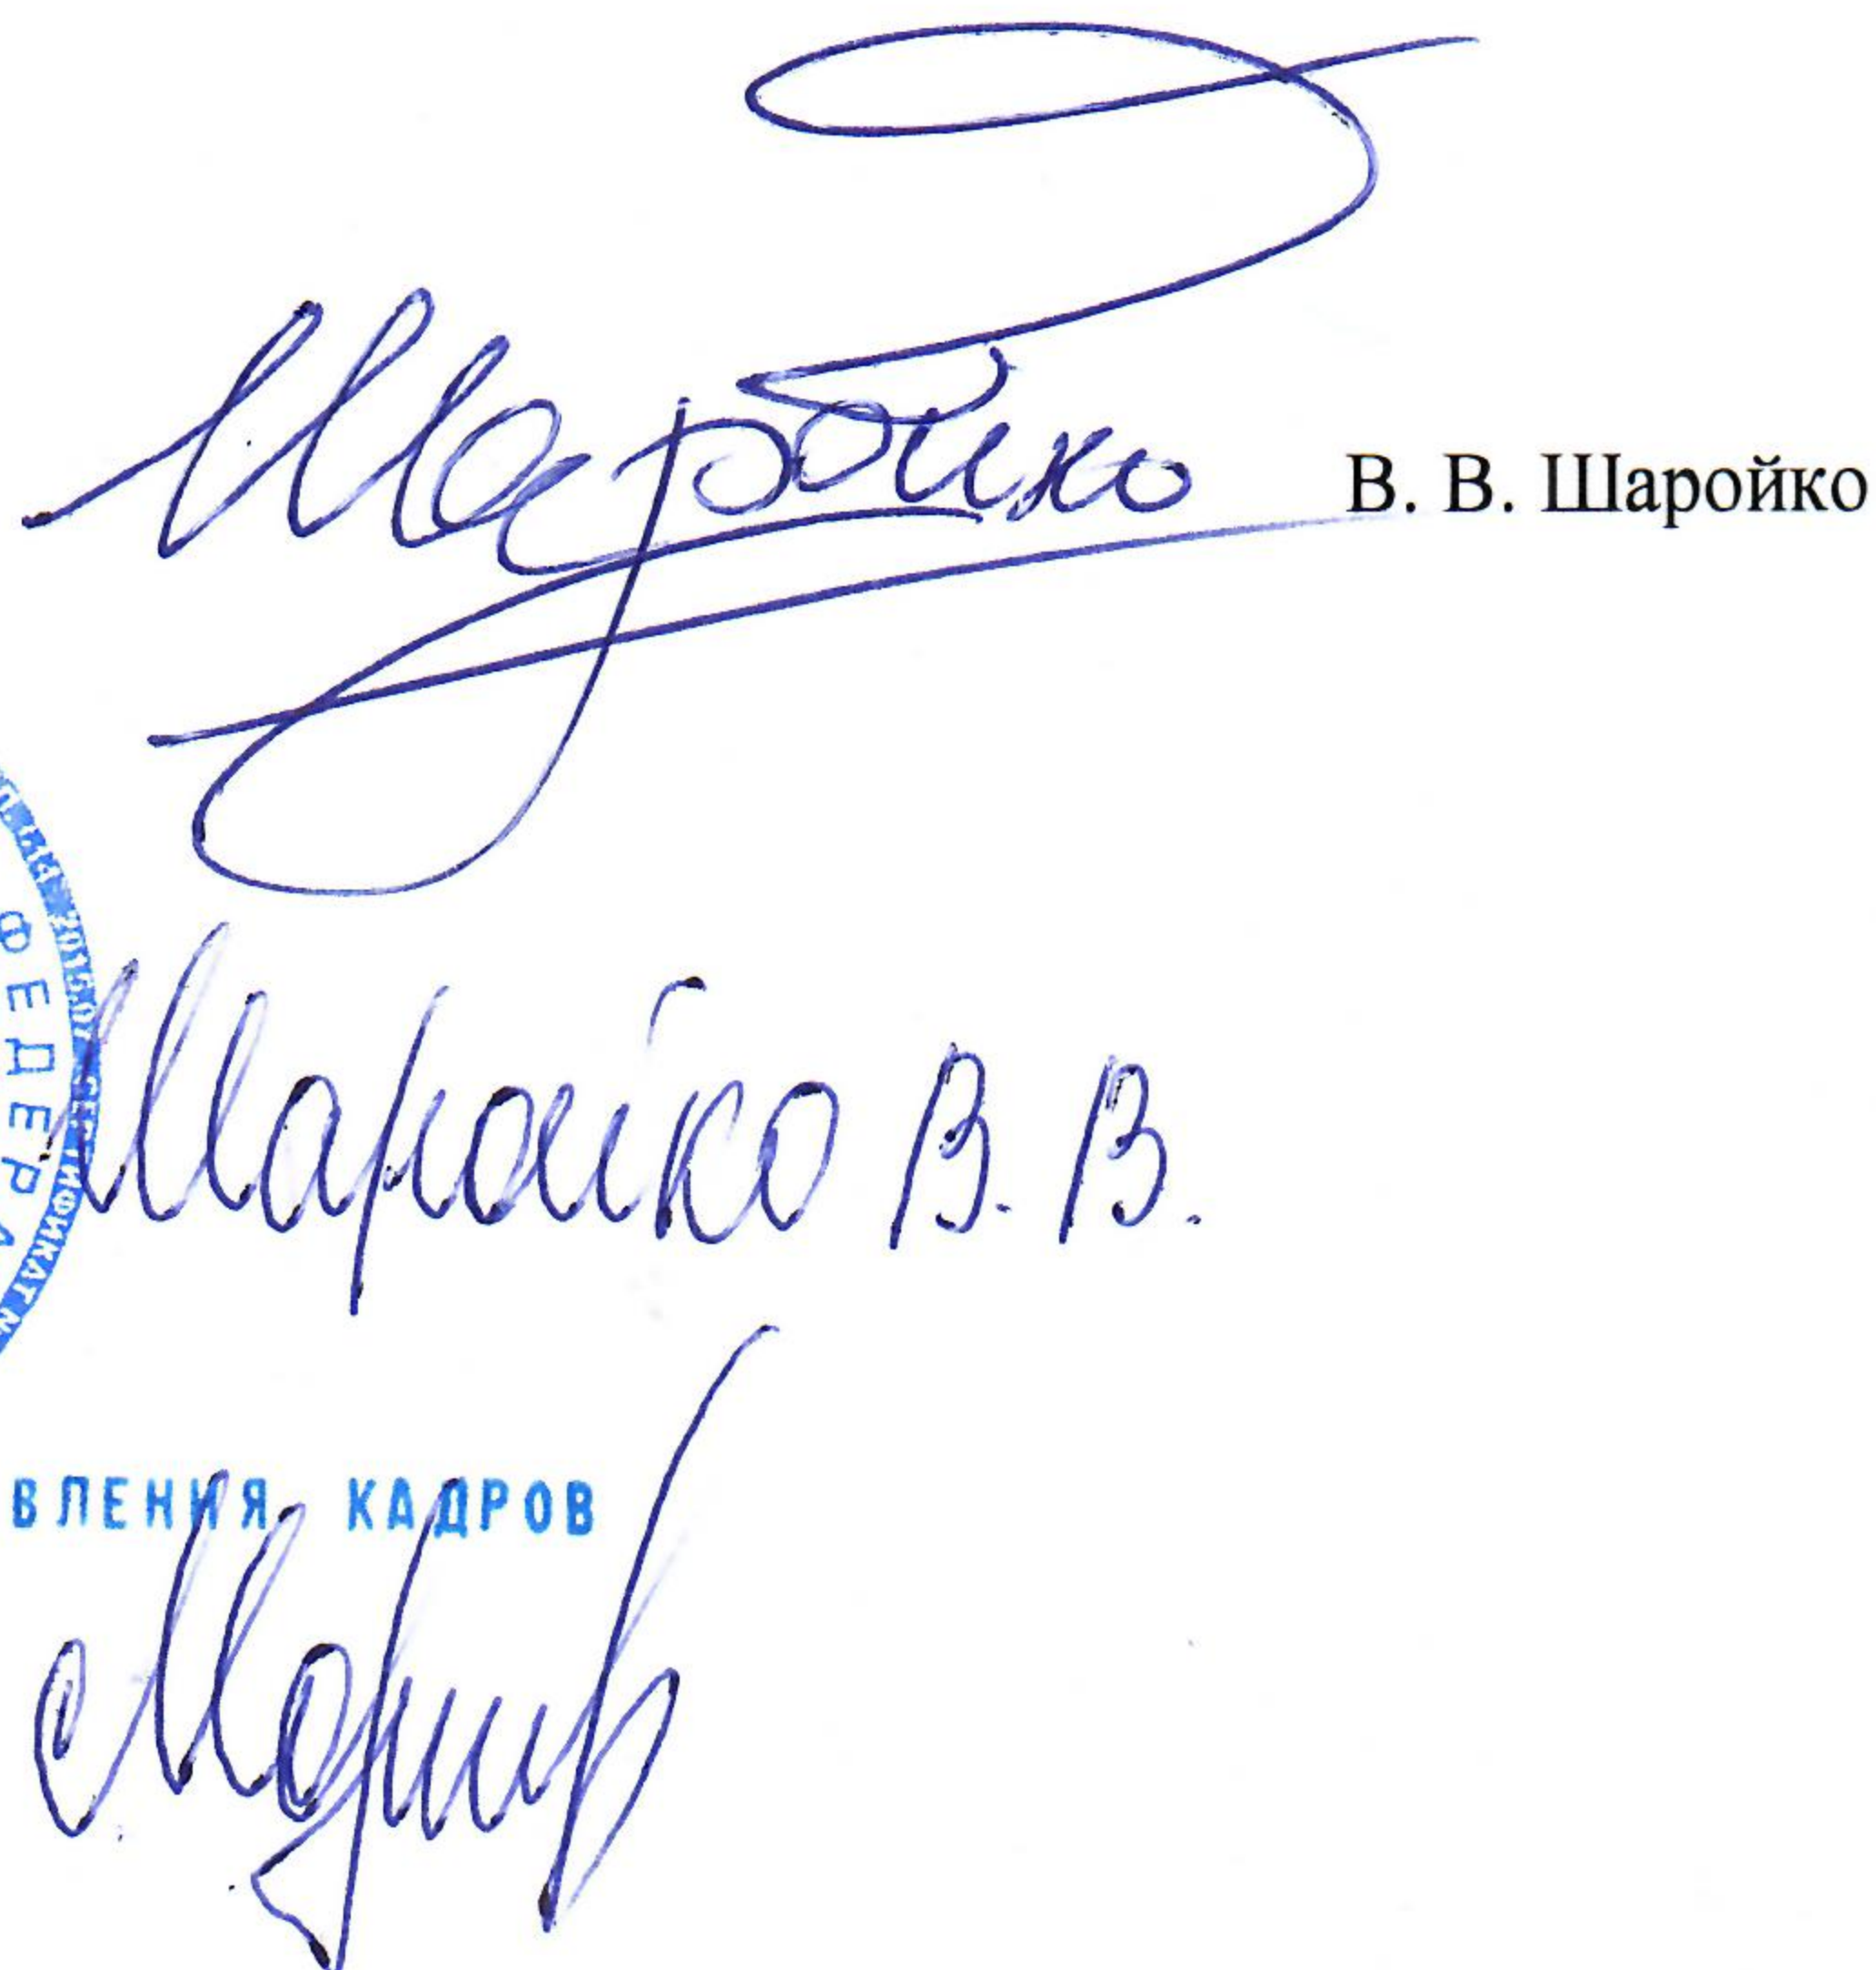 Шаройко В. В. Шаройко
ФЕДЕРА
Шаройко В. В.
ВЛЕНИЯ КАДРОВ